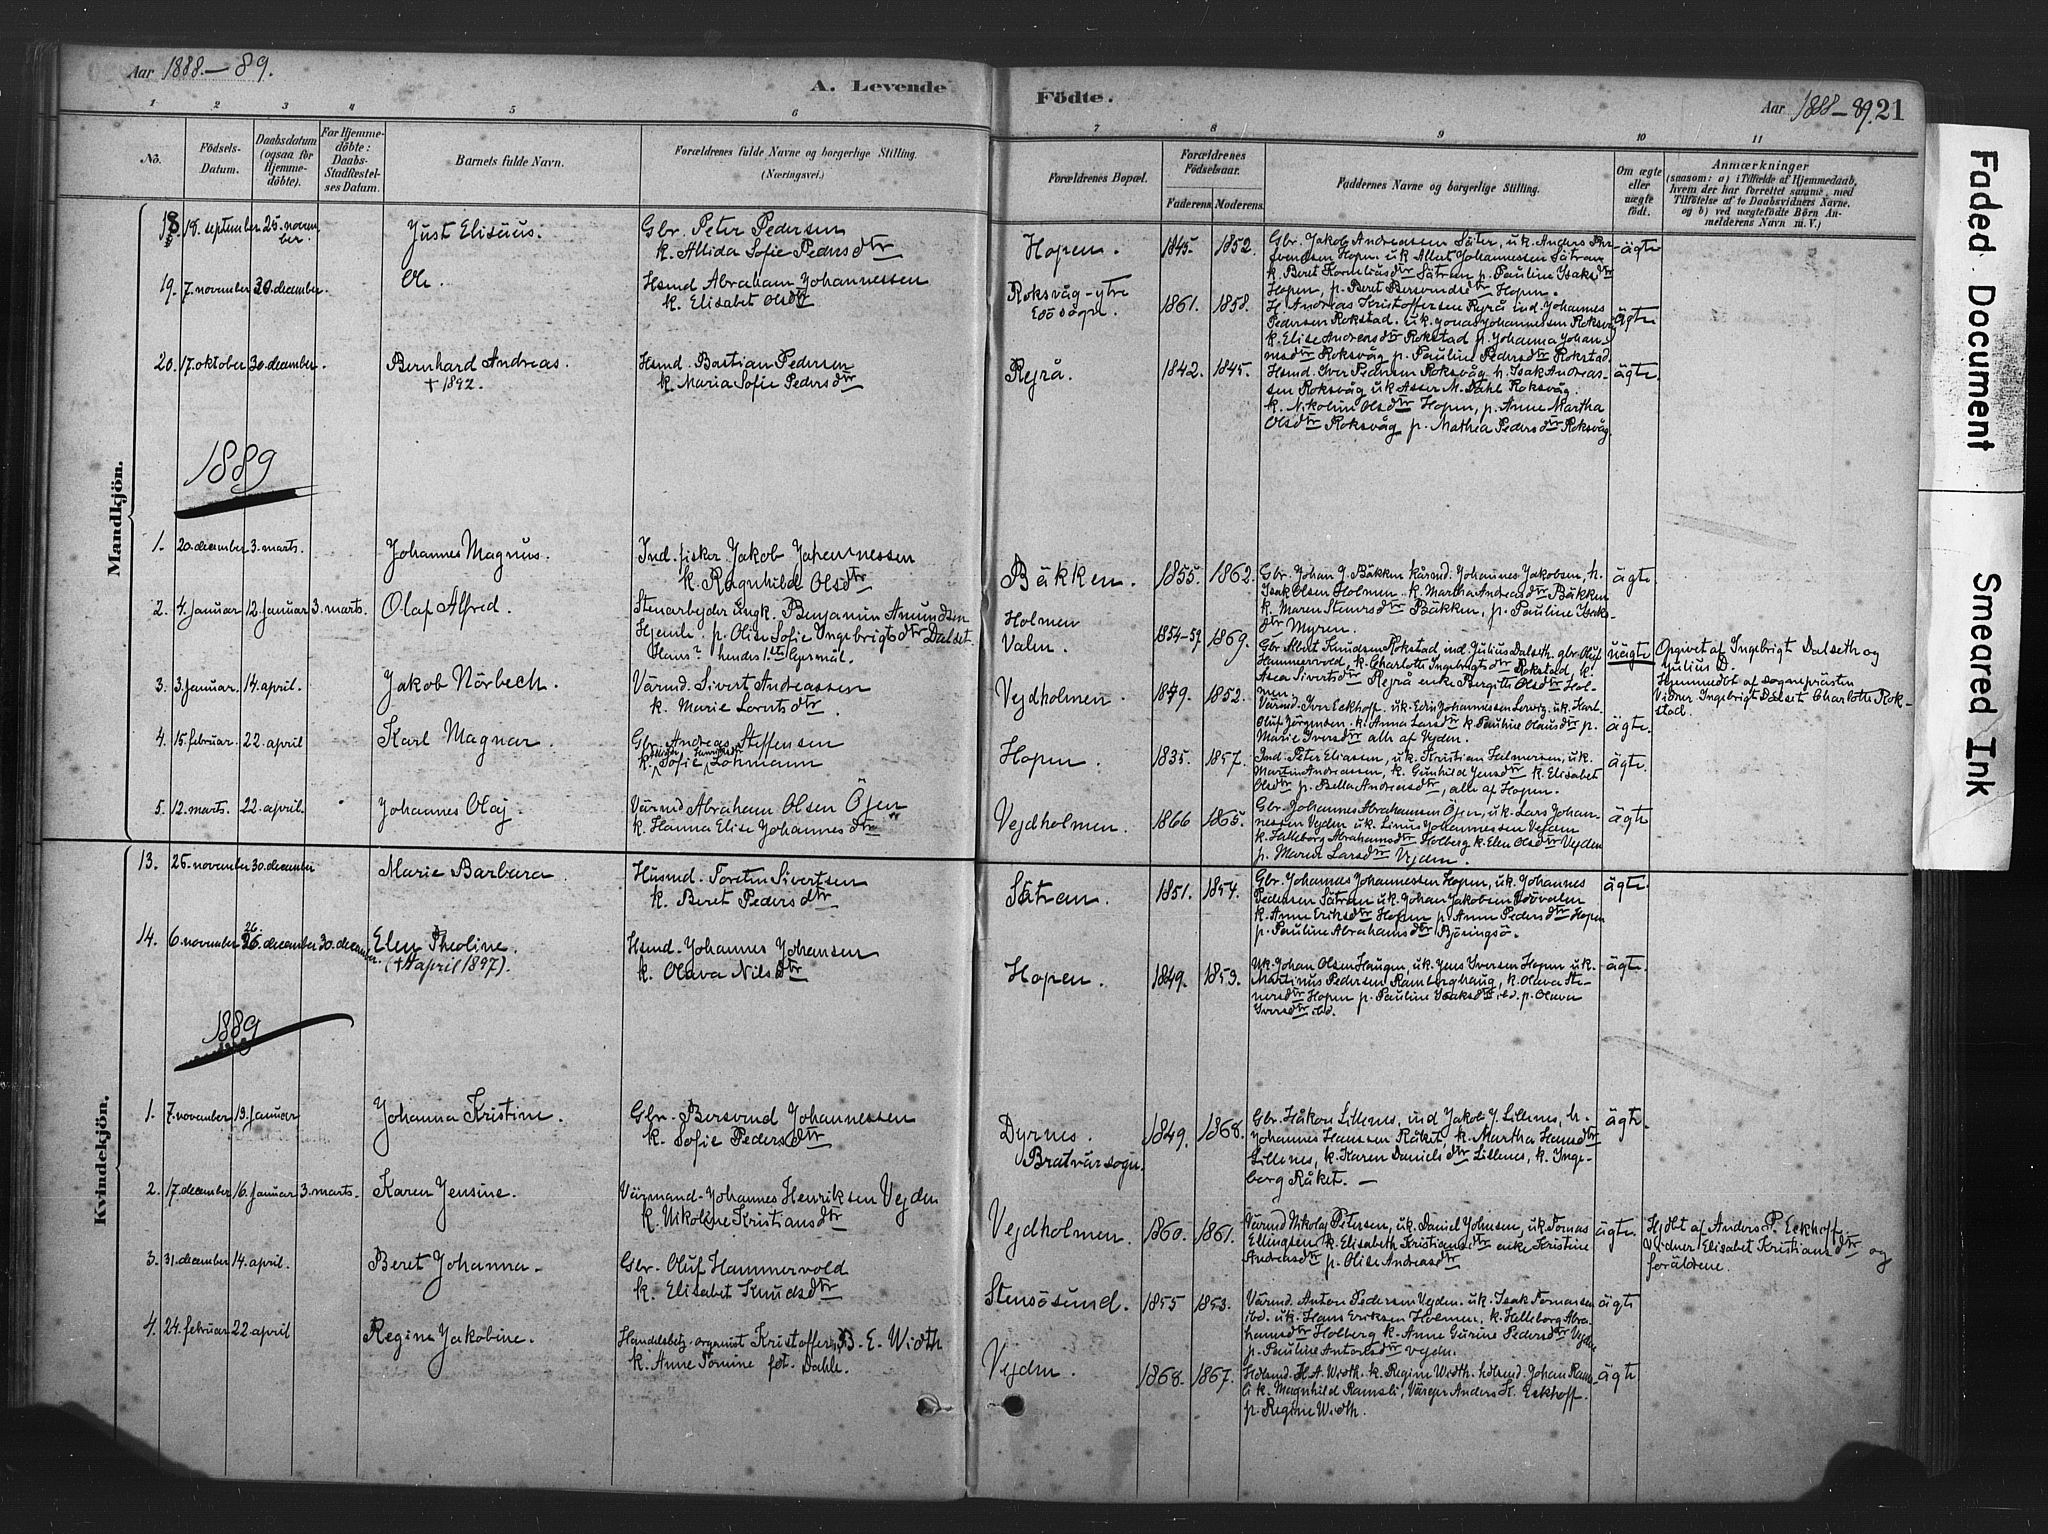 Aar 1888.–89.
A. Levende Födte.
Aar 1888–89. 21
1 2 3 4 5 6 7 8 9 10 11
No.
Födsels-Datum.
Daabsdatum (ogsaa for Hjemme-döbte).
For Hjemme-döbte: Daabs-Stadfæstel-ses Datum.
Barnets fulde Navn.
Forældrenes fulde Navne og borgerlige Stilling.
(Næringsvei.)
Forældrenes Bopæl.
Forældrenes Födselsaar.
Faderens. Moderens.
Faddernes Navne og borgerlige Stilling.
Om ægte eller uægte födt.
Anmærkninger
(saasom: a) i Tilfælde af Hjemmedaab,
hvem der har forrettet samme, med
Tilföielse af to Daabsvidners Navne.
og b) ved uægtefödte Börn An-
melderens Navn m. V.)
Mandkjön.
18. 18. september 25. novem-ber. Just Eliseüs. Gbr. Peter Pedersen
k. Allida Sofie Pedersdtr
Hopen. 1845. 1852. Gbr. Jakob Andreassen Säter, u.k. Anders
Hopen u.k Albert Johannessen Sätran
k. Beret Korneliusdtr Sätran p. Pauline Isaksdtr
Hopen, p. Beret Hopen.
ägte
19. 7. november 30. december. Ole. Hsmd Abraham Johannessen
k. Elisabet Olsdtr
Roksvåg-ytre
1861. 1858. Andreas Kristoffersen Rejrå ind. Johannes
Pedersen Rokstad. u.k. Jonas Johannessen Roksvåg
k. Elise Andreasdtr Rokstad p. Johanna Johan-
nesdtr Roksvåg p. Pauline Pedersdtr Rokstad.
ägte
20. 17. oktober 30. december. Bernhard Andreas.
† 1892.
Hsmd. Bastian Pedersen
k. Maria Sofie Pedersdtr
Rejrå. 1842. 1845. Hsmd. Iver Pedersen Roksvåg h. Isak Andreas-
sen Roksvåg u.k Asser M. Dahl Roksvåg.
k. Nikoline Olsdtr Hopen, p. Anne Martha
Olsdtr Roksvåg p. Mathea Pedersdtr Roksvåg.
ägte.
1889
1. 20. december 3. marts. Johannes Magnus. Ind. fisker Jakob
k. Ragnhild Olsdtr
Bäkken. 1855. 1862. Gbr. Johan J. Bäkken kårmd. Johannes Jakobsen, h.
Isak Olsen Holmen. k. Martha Andreasdtr Bäkken
k. Maren Stenersdtr Bäkken, p. Pauline Isaks-
dtr Myren.
ägte.
2. 4. januar 12. januar 3. marts. Olaf Alfred. Stenarbejder ungk. Benjamin Amundsen
p. Olise Sofie Ingebrigtsdtr Dalset.
Hans? hendes 1ste lejermål.
Holmen
Valen 1854-59 1869. Gbr Albert Knudsen Rokstad ind. Julius Dalseth. gbr. Oluf
Hammervold, k. Charlotte Ingebrigtsdtr Rokstad, k.
Asea Sivertsdtr Rejrå enke Birgitte Olsdtr Hol-
men.
uägte
Opgivet af Ingebrigt Dalseth og
Julius D.
Hjemmedbt af sognepresten
Vidner Ingebrigt Dalset Charlotte Rok-
stad.
3. 3. januar. 14. april. Jakob Nörbech. Värmd. Sivert Andreassen
k. Marie Lorntsdtr.
Vejdholmen 1849. 1852. Värmd. Iver Eckhoff. u.k. Edv. Johannessen u.k. Karl
Oluf Jörgensen. k. Anna Larsdtr k. Pauline Olausdtr p.
Marie Iversdtr alle af Vejden.
ägte.
4. 15. februar. 22. april Karl Magnar. Gbr. Andreas Steffensen
k. Sofie Lohmann
Hopen. 1835. 1857. Ind. Peter Eliassen, u.k. Kristian Helmersen, u.k.
Martin Andreassen, k. Gunhild Jensdtr k. Elisabet
Olsdtr p. Bella Andreasdtr, alle af Hopen.
ägte.
5. 12. marts. 22. april. Johannes Olaf Värmd Abraham Olsen Öjen
k. Hanna Elise Johannesdtr
Vejdholmen. 1866 1865. Gbr. Johannes Abrahamsen Öjen, u.k. Lars Johan-
nessen Vejden u.k. Linus Johannessen Vejden
k. Helleborg Abrahamsdtr Holberg k. Elen Olsdtr Vejden
p. Larsdtr Vejden.
ägte
Kvindekjön.
13. 25. november 30. december Marie Barbara. Husmd. Torsten Sivertsen
k. Beret Pedersdtr
Sätran. 1851. 1854. Gbr. Johannes Johannessen Hopen, u.k. Johannes
Pedersen Sätran u.k. Johan Jakobsen
k. Anne Eriksdtr Hopen p. Anne Pedersdtr Hopen
p. Pauline Abrahamsdtr Björingsö.
ägte.
14. 6. november 26. december 30. december. Elen Theoline.
(† april 1897).
Hsmd. Johannes Johansen
k. Olava Nilsdtr
Hopen. 1849. 1853. Uk. Johan Olsen Haugen, u.k. Jens Iversen Hopen u.k.
Martinus Pedersen Ramberghaug, k. Olava Ste-
nersdtr Hopen p. Pauline Isaksdtr ibd. p. Olava
Iversdtr ibd.
ägte.
1889
1. 7. november 19. januar Johanna Kristine. Gbr. Bersvend Johannessen
k. Sofie Pedersdtr
Dyrnes.
Bratvärsogn. 1849. 1868. Gbr. Håkon Lillenes, ind Jakob J. Lillenes, h.
Johannes Hansen Råket, k. Martha Hansdtr
Lillenes, k. Karen Danielsdtr Lillenes, k. Inge-
borg Råket. —
ägte.
2. 17. december 16. januar 3. marts. Karen Jensine. Värmand. Johannes Henriksen Vejden
k. Nikoline Kristiansdtr
Vejdholmen. 1860. 1861. Värmd Nikolaj Petersen, u.k. Daniel Johnsen, u.k. Tomas
Ellingsen k. Elisabeth Kristiansdtr enke Kristine
Andreasdtr p. Olise Andreasdtr
ägte.
Hjdbt af Anders P. Eckhoff.
Vidner Elisabet Kristiansdtr og
foräldrene.
3. 31. december 14. april. Beret Johanna. Gbr. Oluf Hammervold
k. Elisabet Knudsdtr
Stensösund. 1855 1853. Värmd. Anton Pedersen Vejden. u.k. Isak Tomassen
ibd. u.k. Hans Eriksen Holmen, k. Helleborg Abra-
hamsdtr Holberg k. Anne Gurine Pedersdtr Vejden
p. Pauline Antonsdtr Vejden.
ägte
4. 24. februar 22 april Regine Jakobine. Handelsbetj. organist Kristoffer B. E. Width
k. Anne Tomine föt. Dahle.
Vejden 1868. 1867. Hdlsmd. H. A. Width. k. Regine Width. hdlsmd. Johan Rams-
li k. Magnhild Ramsli, Värejer Anders H. Eckhoff.
p. Regine Width.
ägte
Faded Document
Smeared Ink